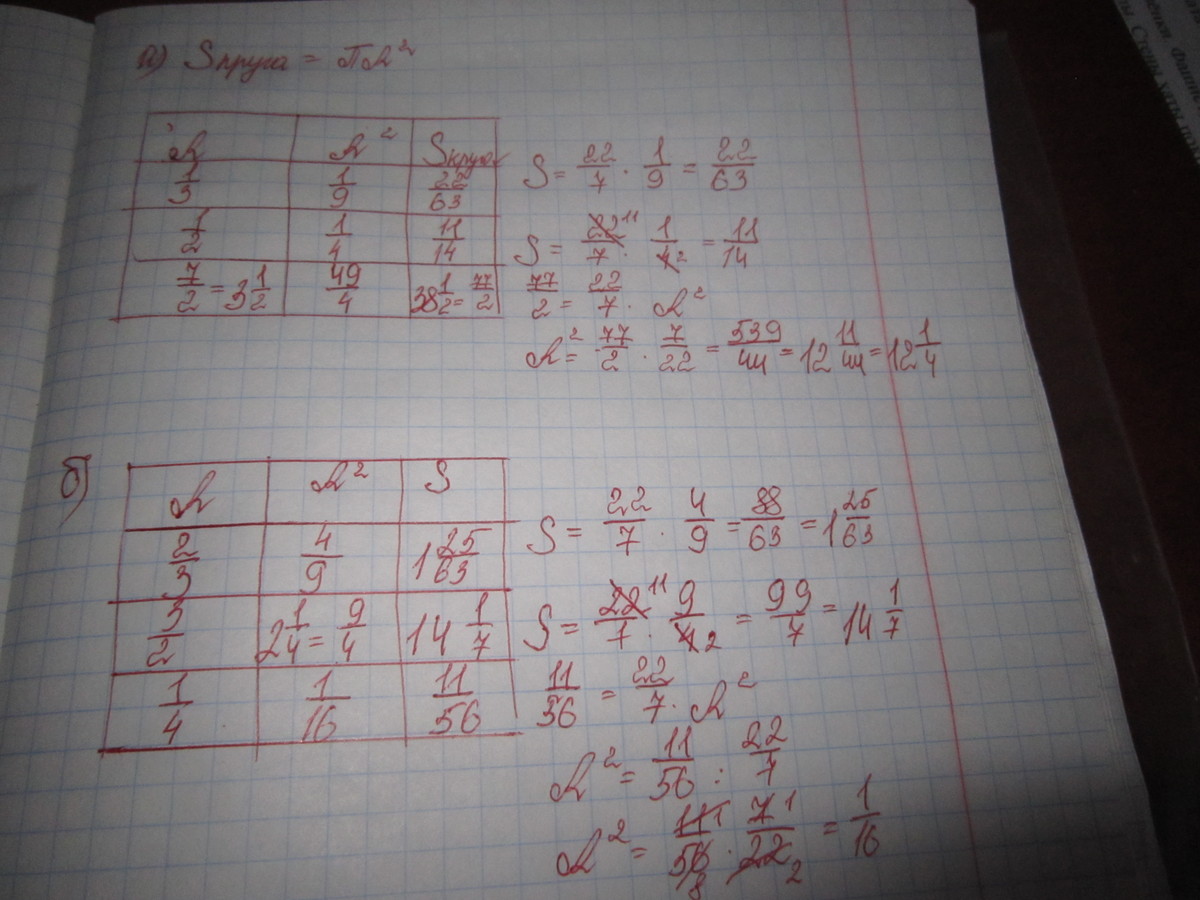 а) Sкруга = ПR²
R R² Sкруга
1/3 1/9 22/63
1/2 1/4 11/14
7/2 = 3 1/2 49/4 38 1/2 = 77/2
S = 22/7 · 1/9 = 22/63
S = 22/7 · 1/4 = 11/14
11 2
77/2 = 22/7 · R²
R² = 77/2 · 7/22 = 539/44 = 12 11/44 = 12 1/4
б)
R R² S
2/3 4/9 1 25/63
3/2 2 1/4 = 9/4 14 1/7
1/4 1/16 11/56
S = 22/7 · 4/9 = 88/63 = 1 25/63
S = 22/7 · 9/4 = 99/7 = 14 1/7
11 2
11/56 = 22/7 · R²
R² = 11/56 : 22/7
R² = 11/56 · 7/22 = 1/16
1 1
8 2